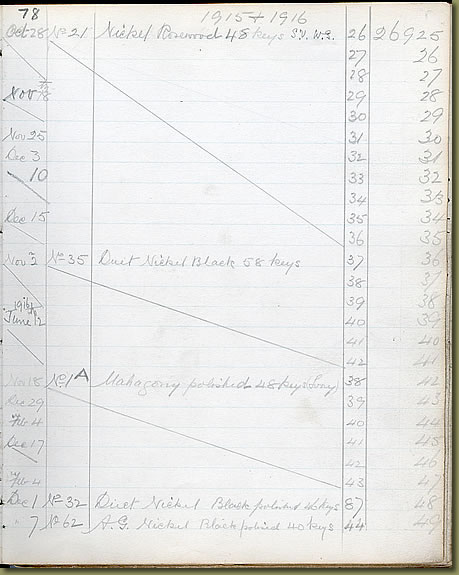 78 1915 + 1916
Oct 28 No 21 Nickel Rosewood 48 keys S.V. W.G. 26 26925
27 26
28 27
Nov 18 29 28
30 29
Nov 25 31 30
Dec 3 32 31
10 33 32
34 33
Dec 15 35 34
36 35
Nov 2 No 35 Duet Nickel Black 58 keys 37 36
38 37
1916 39 38
June 12 40 39
41 40
42 41
Nov 18 No 1A Mahogony polished 48 keys 38 42
Dec 29 39 43
Feb 4 40 44
Dec 17 41 45
42 46
Feb 4 43 47
Dec 1 No 32 Duet Nickel Black polished 46 keys 87 48
" 7 No 62 A.G. Nickel Black polished 40 keys 44 49